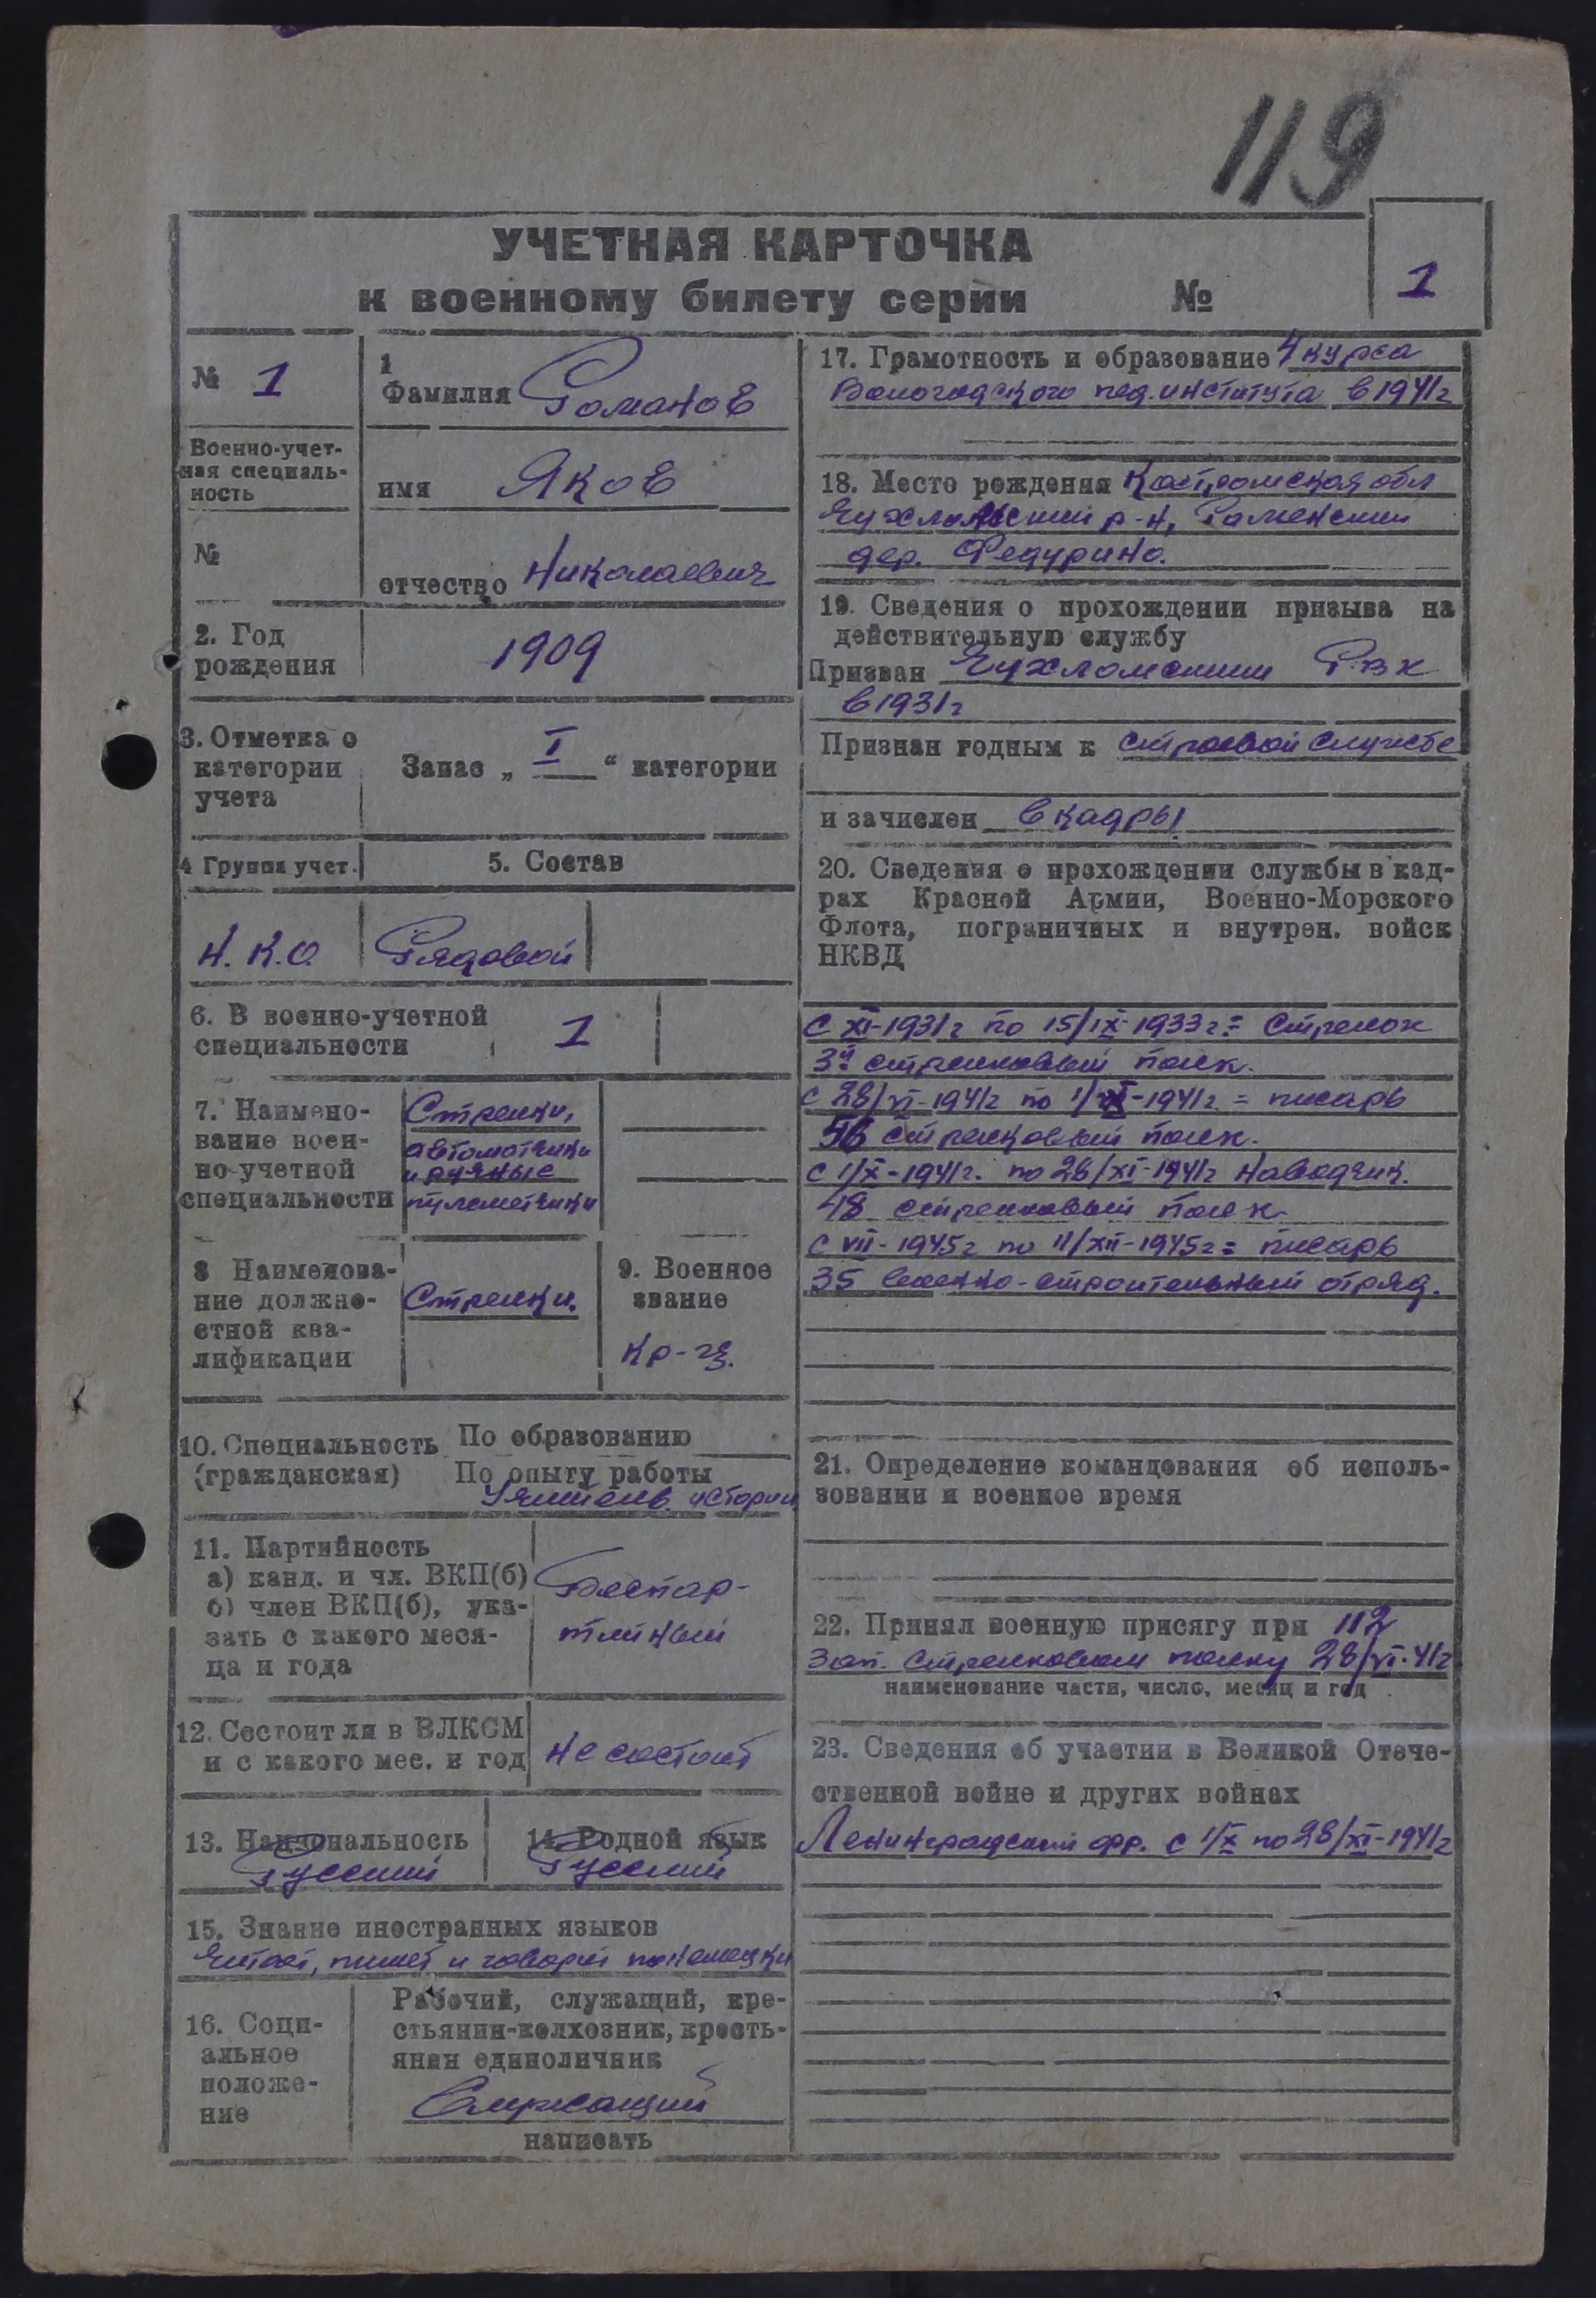 119
УЧЕТНАЯ КАРТОЧКА
к военному билету серии №
1
№ 1
1
Фамилия Романов
Военно-учет-
ная специаль-
ность
имя Яков
№
отчество Николаевич
2. Год
рождения
1909
3. Отметка о
категории
учета
Запас „ I “ категории
4 Группа учет.
5. Состав
Н.К.О.
Рядовой
6. В военно-учетной
специальности
1
7. Наимено-
вание воен-
но-учетной
специальности
Стрелки,
автоматчики
и ручные
пулеметчики
8 Наименова-
ние должно-
стной ква-
лификации
Стрелки.
9. Военное
звание
Кр-ец.
10. Специальность
(гражданская)
По образованию
По опыту работы
Учитель истории
11. Партийность
а) канд. и чл. ВКП(б)
б) член ВКП(б), ука-
зать с какого меся-
ца и года
Беспар-
тийный
12. Состоит ли в ВЛКСМ
и с какого мес. и год
Не состоит
13. Национальность
Русский
14. Родной язык
Русский
15. Знание иностранных языков
Читает, пишет и говорит по немецки
16. Соци-
альное
положе-
ние
Рабочий, служащий, кре-
стьянин-колхозник, кресть-
янин единоличник
Служащий
написать
17. Грамотность и образование 4 курса
Вологодского пед. института в 1941г
18. Место рождения Костромская обл
Чухломский р-н, Раменский
дер. Федурино.
19. Сведения о прохождении призыва на
действительную службу
Призван Чухломским РВК
в 1931г
Признан годным к строевой службе
и зачислен в кадры
20. Сведения о прохождении службы в кад-
рах Красной Армии, Военно-Морского
Флота, пограничных и внутрен. войск
НКВД
С XI-1931г по 15/IX-1933г = Стрелок
3й стрелковый полк.
С 28/VI-1941г по 1/X-1941г = писарь
56 стрелковый полк.
С 1/X-1941г. по 28/XI-1941г Наводчик.
48 стрелковый полк
С VII-1945г по 11/XII-1945г = писарь
35 военно-строительный отряд.
21. Определение командования об исполь-
зовании и военное время
22. Принял военную присягу при 112
Зап. стрелковом полку 28/VI-41г
наименование части, число, месяц и год
23. Сведения об участии в Великой Отече-
ственной войне и других войнах
Ленинградский фр. с 1/X по 28/XI-1941г